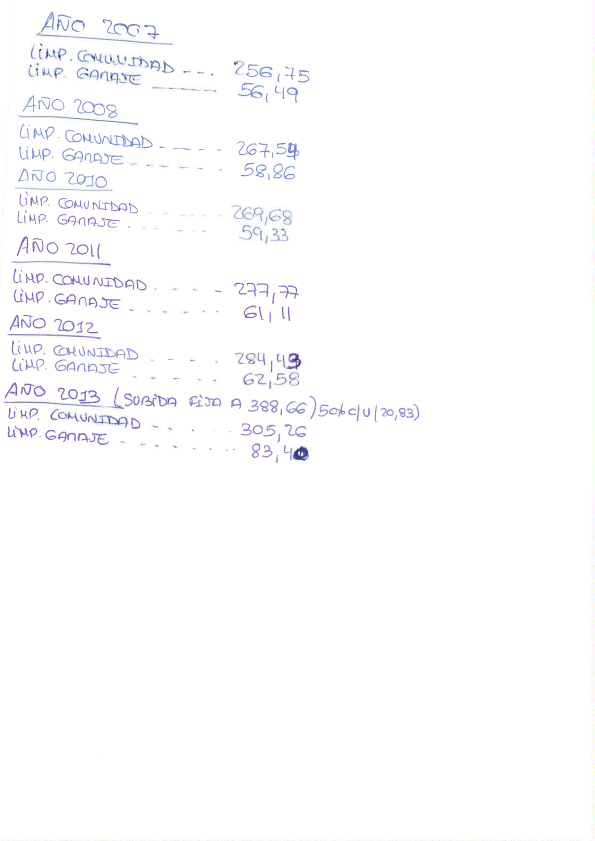 AÑO 2007
LIMP. COMUNIDAD --- 256,75
LIMP. GARAJE ------ 56,49
AÑO 2008
LIMP. COMUNIDAD ----- 267,54
LIMP. GARAJE ------ 58,86
AÑO 2010
LIMP. COMUNIDAD ------ 269,68
LIMP. GARAJE ------ 59,33
AÑO 2011
LIMP. COMUNIDAD - - - - 277,77
LIMP. GARAJE ------ 61,11
AÑO 2012
LIMP. COMUNIDAD - - - - 284,43
LIMP. GARAJE ------ 62,58
AÑO 2013 (SUBIDA FIJA A 388,66) 50% c/u (20,83)
LIMP. COMUNIDAD ----- 305,26
LIMP. GARAJE ------- 83,40